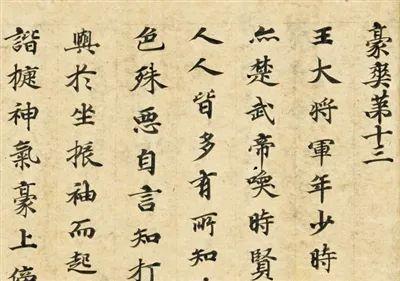 豪爽苐十三
王大將軍年少時
亦楚武帝喚時賢
人人皆多有所知
色殊惡自言知打
興於坐振袖而起
諧捷神氣豪上